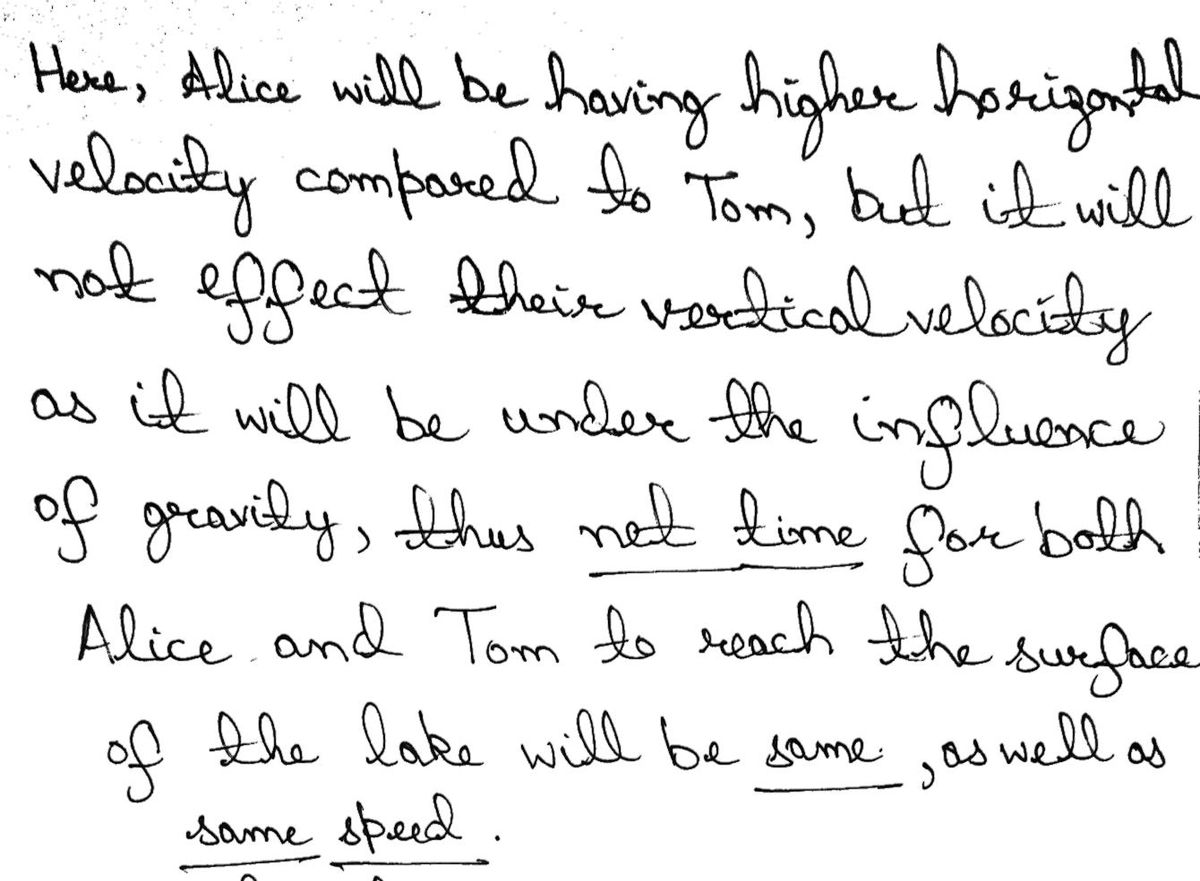 Here, Alice will be having higher horizontal
velocity compared to Tom, but it will
not effect their vertical velocity
as it will be under the influence
of gravity, thus net time for both
Alice and Tom to reach the surface
of the lake will be same, as well as
same speed.